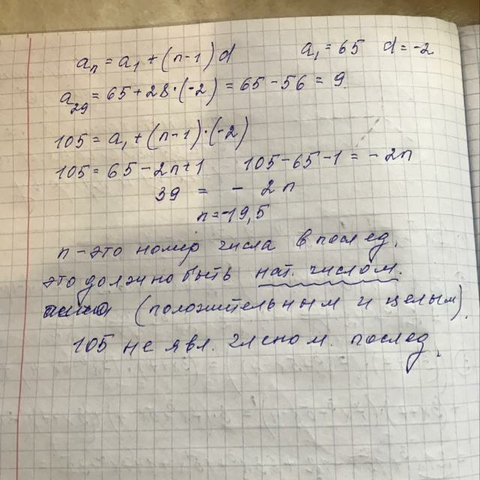 aₙ = a₁ + (n-1)d a₁ = 65 d = -2
a₂₉ = 65 + 28·(-2) = 65 - 56 = 9.
105 = a₁ + (n-1)·(-2)
105 = 65 - 2n + 1 105 - 65 - 1 = -2n
39 = - 2n
n = -19,5
n - это номер числа в послед.
это должно быть нат. числом.
(положительным и целым).
105 не явл. членом послед.